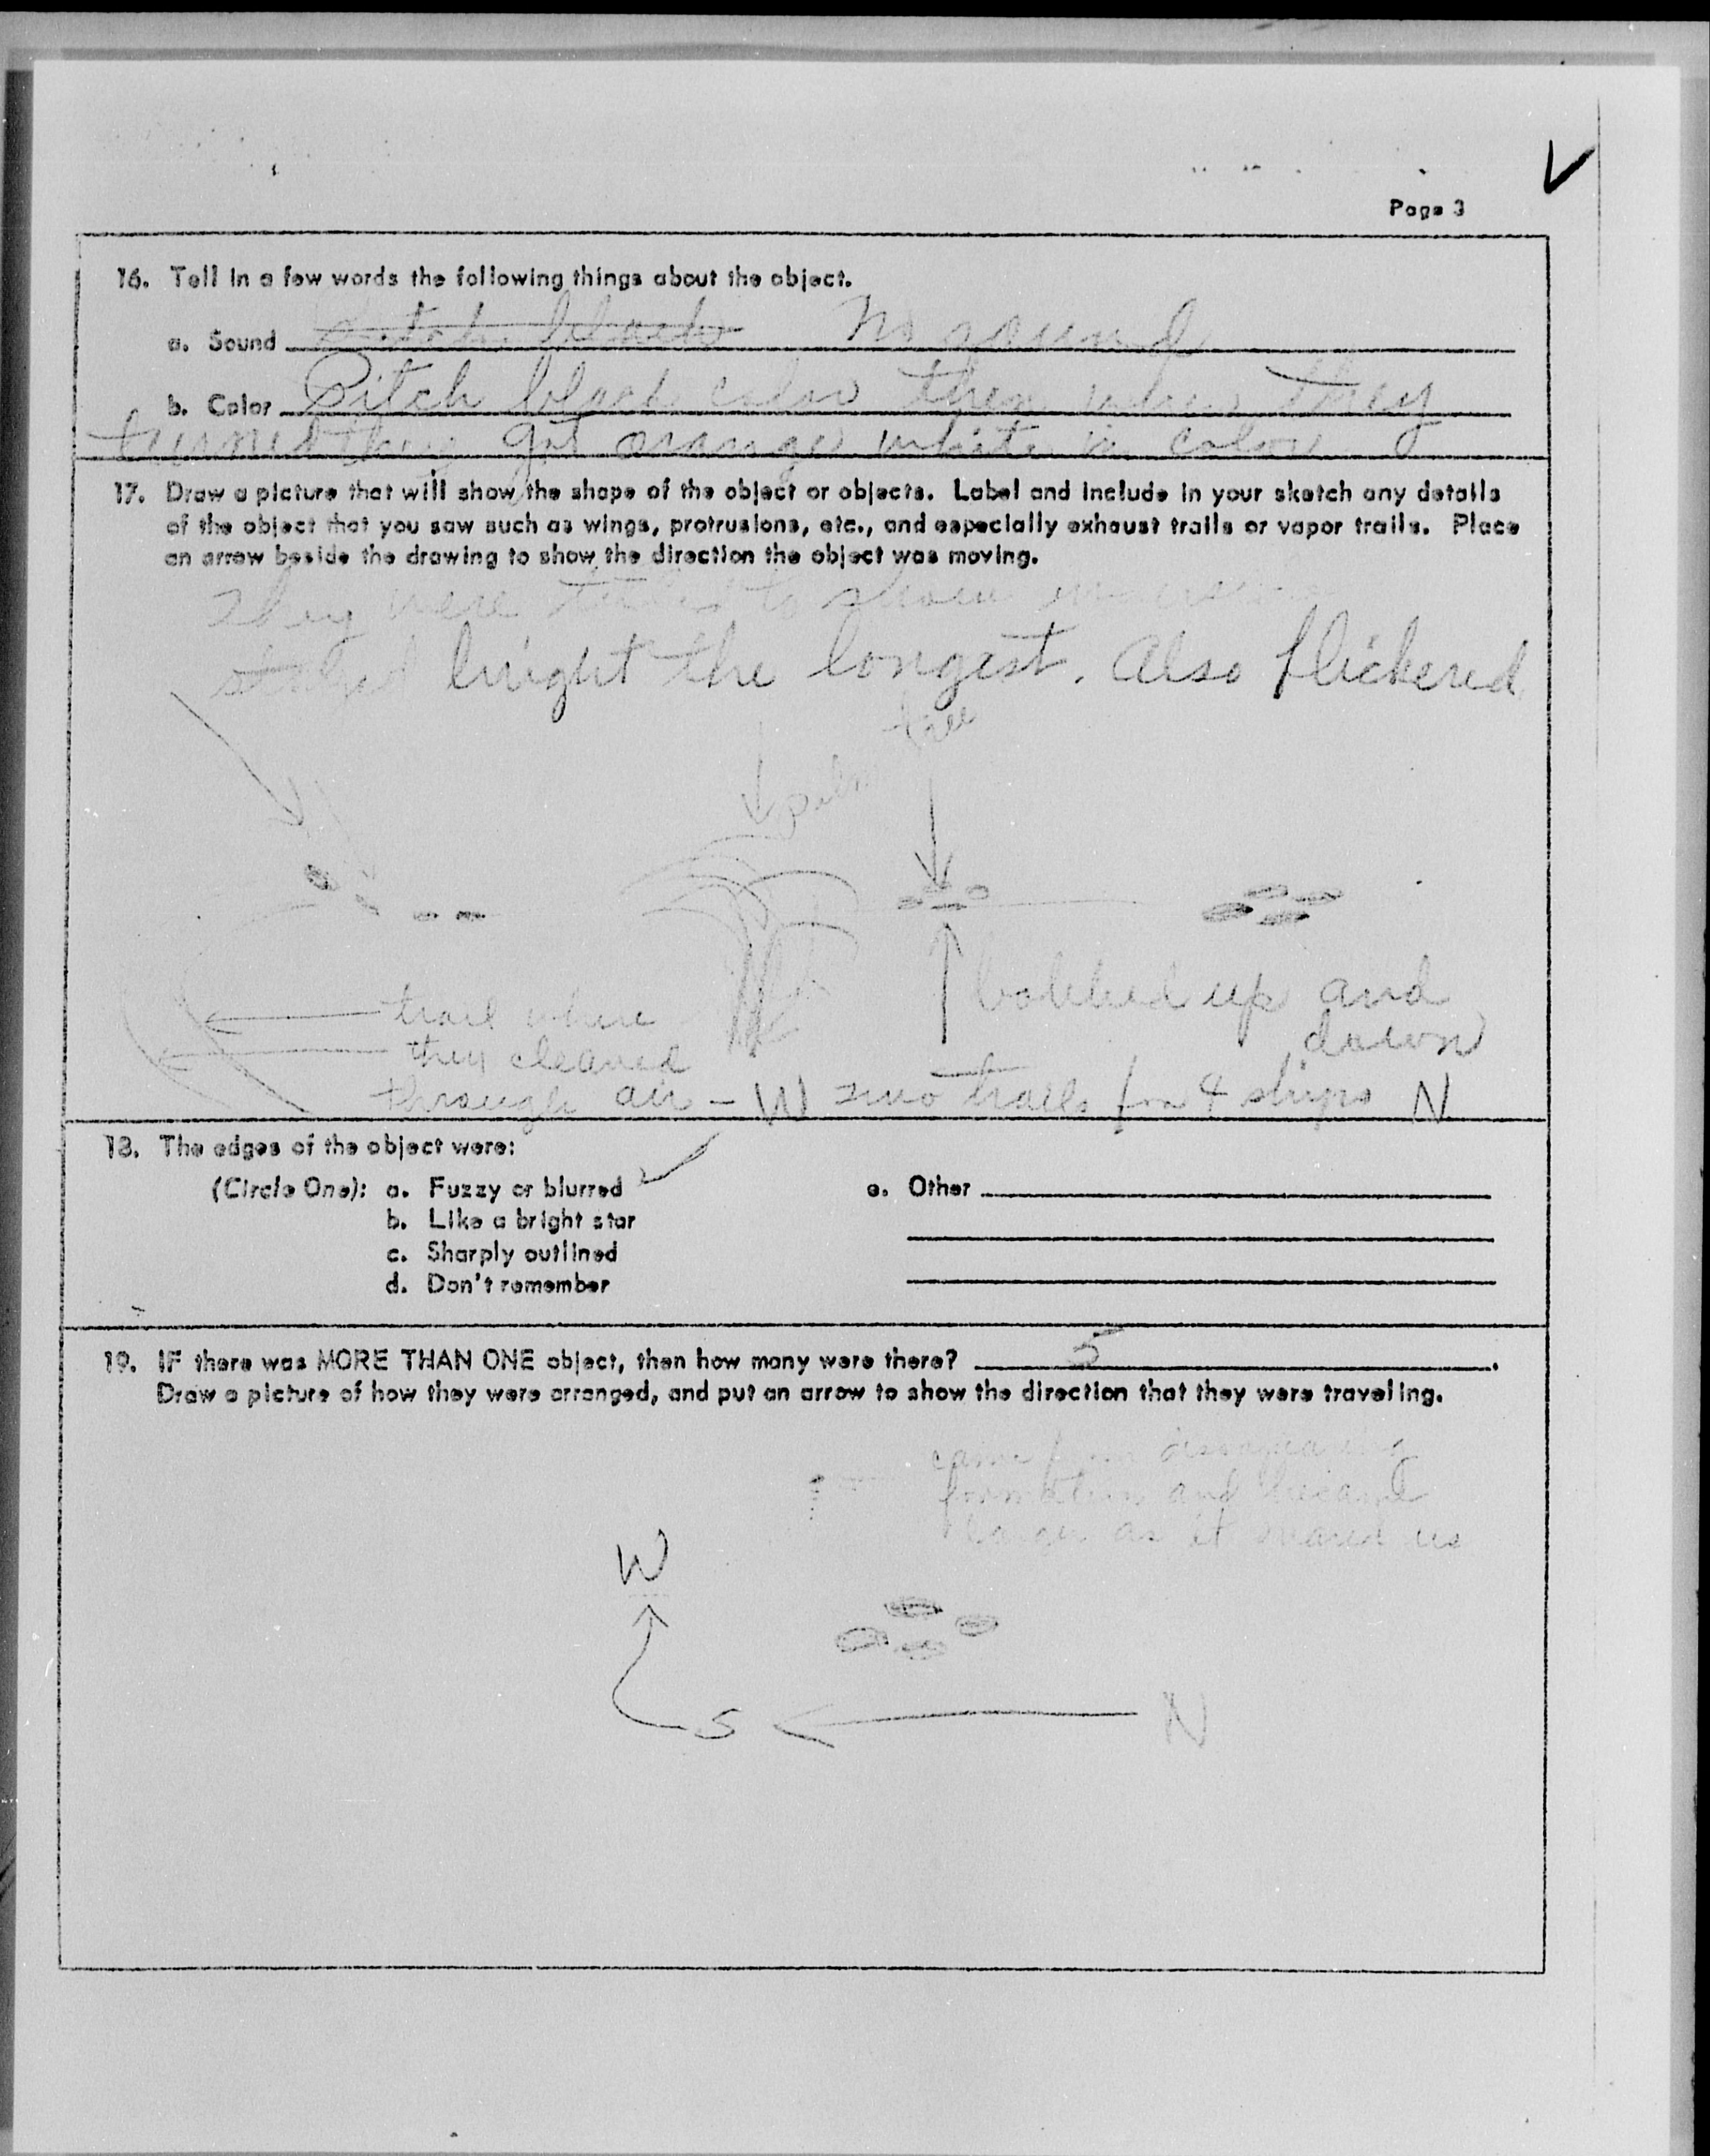 Page 3
16. Tell in a few words the following things about the object.
a. Sound pitch black No sound
b. Color Pitch black color then when they
turned they got orange white in color
17. Draw a picture that will show the shape of the object or objects. Label and include in your sketch any details
of the object that you saw such as wings, protrusions, etc., and especially exhaust trails or vapor trails. Place
an arrow beside the drawing to show the direction the object was moving.
They were to show
stayed bright the longest. Also flickered
palm tree
bobbed up and
down
trail where
they cleaved
through air - W two trails for 4 ships N
18. The edges of the object were:
(Circle One): a. Fuzzy or blurred ✓ e. Other
b. Like a bright star
c. Sharply outlined
d. Don't remember
19. IF there was MORE THAN ONE object, then how many were there? 5.
Draw a picture of how they were arranged, and put an arrow to show the direction that they were traveling.
came from
formation and became
larger as it neared us
W
S N